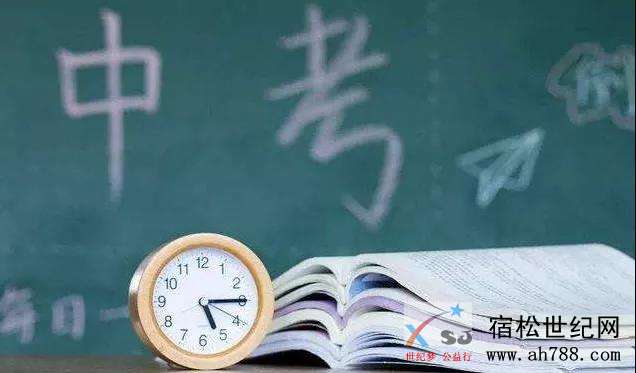 中考
倒
每日一
12
11 1
10 2
9 3
8 4
7 5
6
XSJ
世纪梦 公益行
宿松世纪网
www.ah788.com